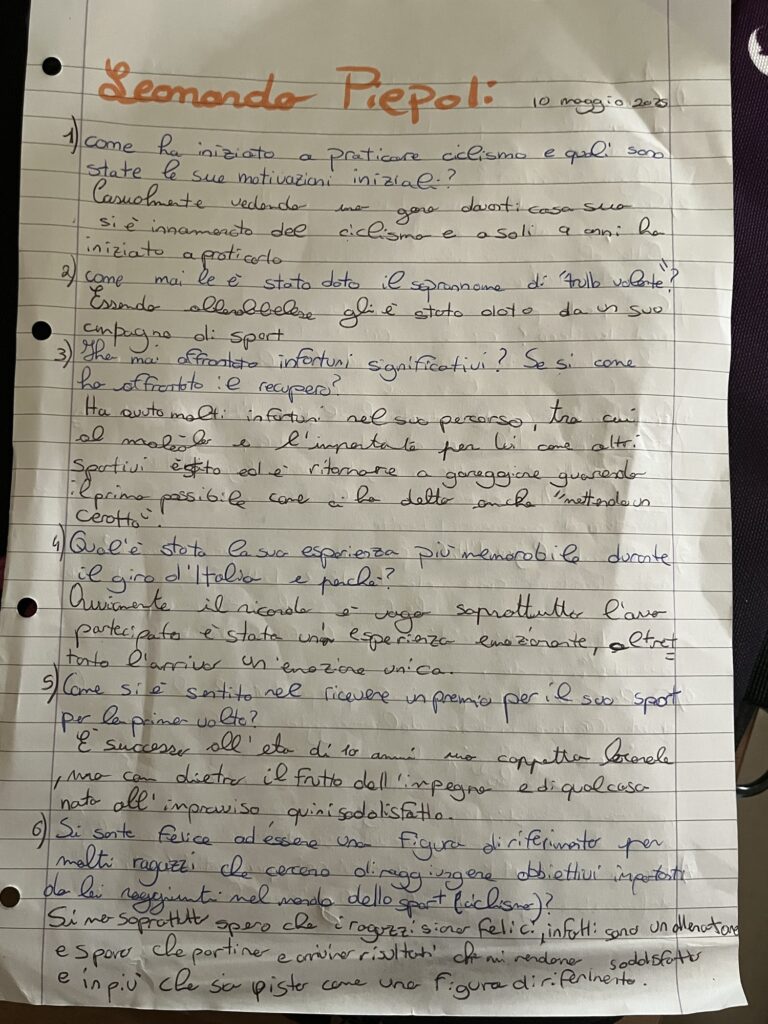 Leonardo Piepoli 10 maggio 2025
1) come ha iniziato a praticare ciclismo e quali sono
state le sue motivazioni iniziali?
Casualmente vedendo una gara davanti casa sua
si è innamorato del ciclismo e a soli 9 anni ha
iniziato a praticarlo
2) come mai le è stato dato il soprannome di "trullo volante"?
Essendo alberobellese gli è stato dato da un suo
compagno di sport
3) Ha mai affrontato infortuni significativi? Se si come
ha affrontato il recupero?
Ha avuto molti infortuni nel suo percorso, tra cui
al e l'importante per lui come altri
sportivi ed è ritornare a gareggiare guarendo
il primo possibile come ci ha detto anche "mettendo un
cerotto".
4) Qual'è stata la sua esperienza più memorabile durante
il giro d'Italia e perché?
Ovviamente il ricordo è vago soprattutto l'aver
partecipato è stata un'esperienza emozionante, altret
tanto l'arrivo un'emozione unica.
5) Come si è sentito nel ricevere un premio per il suo sport
per la prima volta?
È successo all'età di 10 anni una coppetta locale
, ma con dietro il frutto dell'impegno e di qualcosa
nato all'improvviso, quini soddisfatto.
6) Si sente felice ad essere una figura di riferimento per
molti ragazzi che cercano di raggiungere obbiettivi importanti
da lei raggiunti nel mondo dello sport (ciclismo)?
Si ma soprattutto spero che i ragazzi siano felici, infatti sono un allenatore
e spero che portino e arrivino risultati che mi rendono soddisfatto
e in più che sia visto come una figura di riferimento.